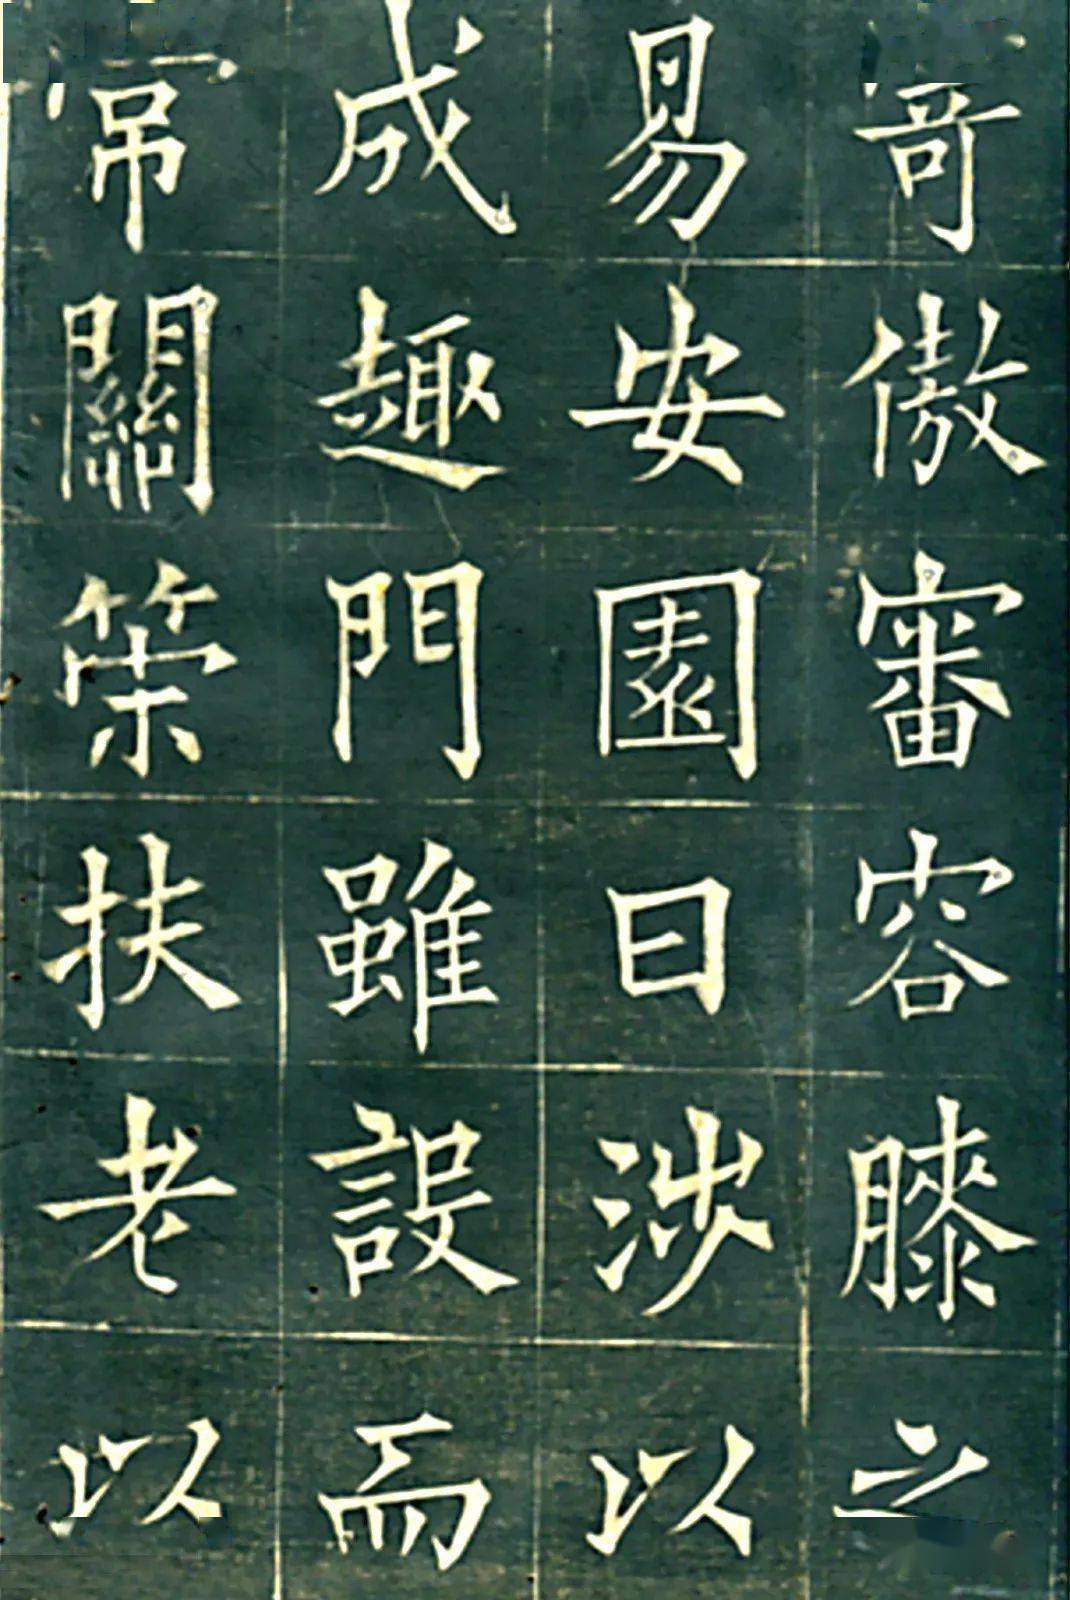 寄傲審容膝之
易安園日涉以
成趣門雖設而
常關策扶老以